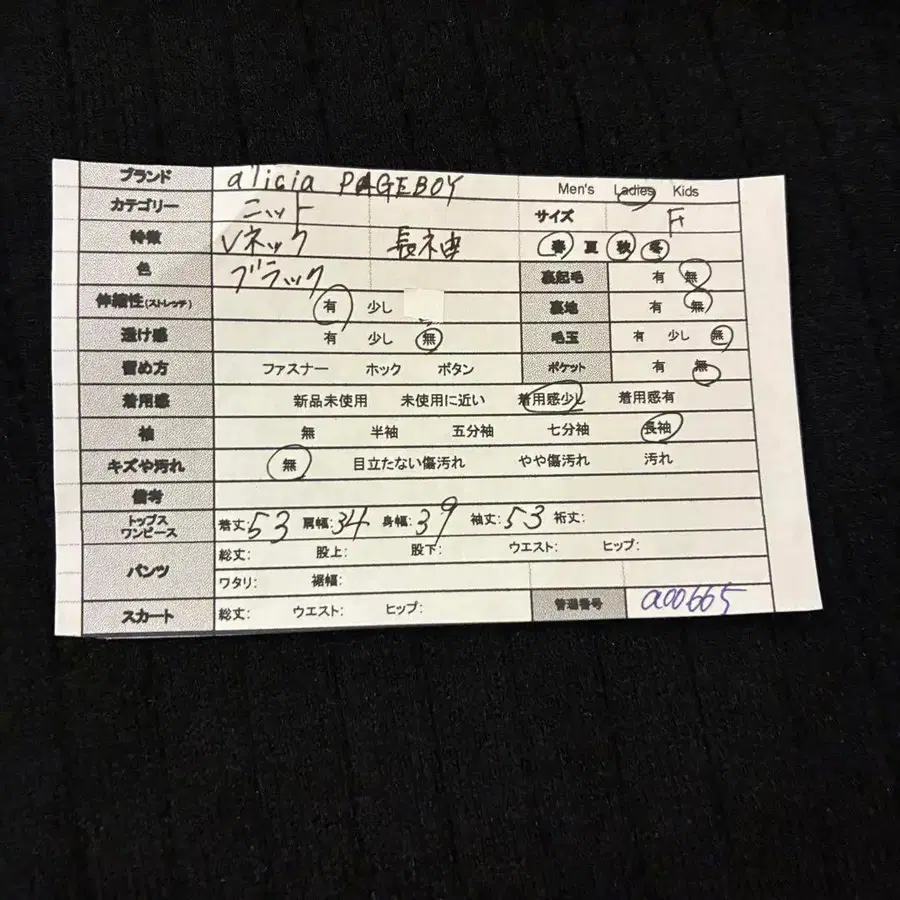 ブランド alicia PAGEBOY Men's Ladies Kids
カテゴリー ニット サイズ F
特徴 Vネック 長袖 春 夏 秋 冬
色 ブラック 裏起毛 有 無
伸縮性(ストレッチ) 有 少し 裏地 有 無
透け感 有 少し 無 毛玉 有 少し 無
留め方 ファスナー ホック ボタン ポケット 有 無
着用感 新品未使用 未使用に近い 着用感少し 着用感有
袖 無 半袖 五分袖 七分袖 長袖
キズや汚れ 無 目立たない傷汚れ やや傷汚れ 汚れ
備考
トップス
ワンピース 着丈:53 肩幅:34 身幅:39 袖丈:53 裄丈:
パンツ 総丈: 股上: 股下: ウエスト: ヒップ:
ワタリ: 裾幅:
スカート 総丈: ウエスト: ヒップ: 管理番号 a00665